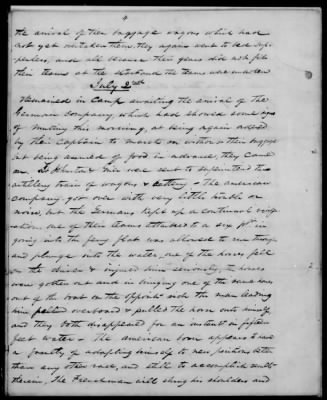 4
the arrival of their baggage wagons which had
not yet overtaken them, they again went to bed supperless,
and all because their guns did not put
their teams at the
July 2nd
Remained in Camp awaiting the arrival of the
German company, which had showed some signs
of mutiny this morning, at being again ordered
by their Captain to march on without their baggage
but being assured of food in advance, they came
on. Lt. & were sent to superintend the
artillery train of wagons & battery. The American
company got over with very little trouble or
noise, but the Germans kept up a continual
one of their teams attached to a six pdr in
going into the ferry flat was allowed to run through
and plunge into the water, one of the horses fell
on the driver & injured him seriously, the horses
were gotten out and in bringing one of the same horses
out of the boat on the opposite side the man leading
him overboard & pulled the horse onto himself
and they both disappeared for an instant in fifteen
feet water. The American born appears to have
a faculty of adapting himself to new positions better
than any other race, and still to accomplish
therein, The Frenchman will shrug his shoulders and